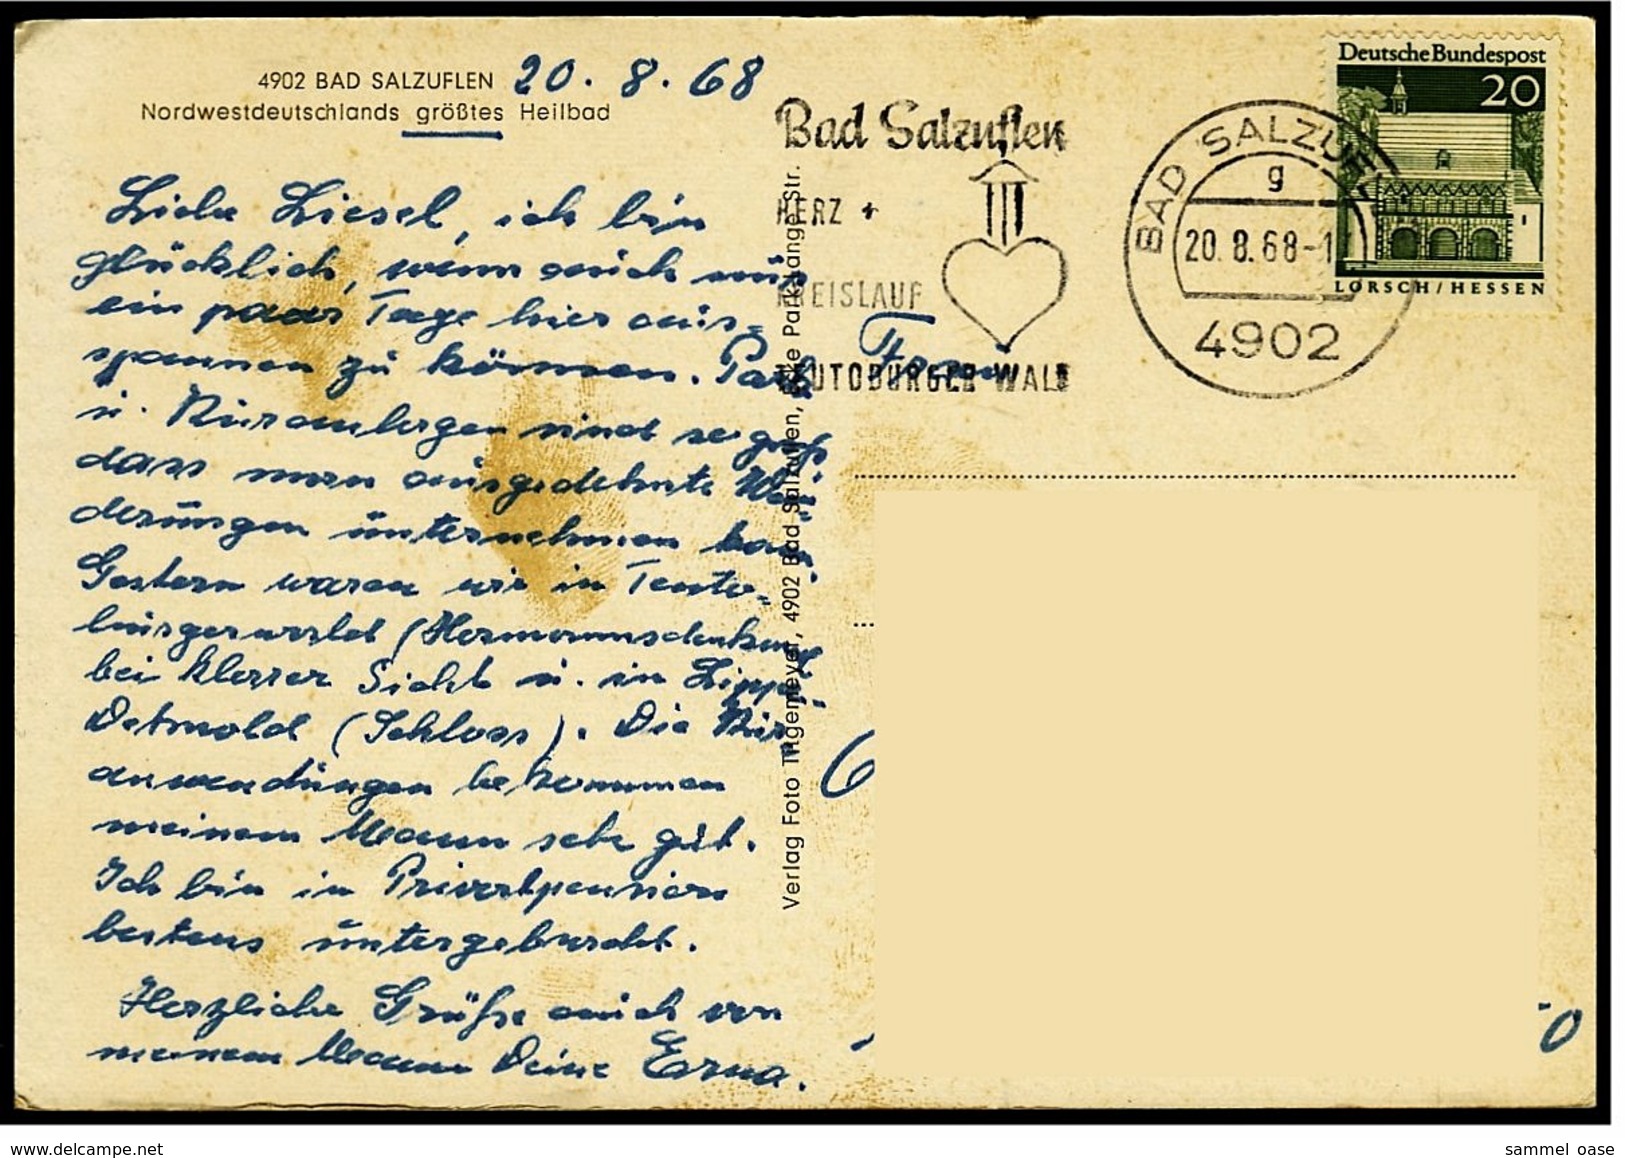 4902 BAD SALZUFLEN 20. 8. 68
Nordwestdeutschlands größtes Heilbad
Liebe Liesel, ich bin
glücklich, wenn auch nur
ein paar Tage hier aus-
spannen zu können. Park
u. Kuranlagen sind so groß
dass man ausgedehnte Wan-
derungen unternehmen kann.
Gestern waren wir in Teuto-
burgerwald (Hermannsdenkmal
bei klarer Sicht u. in Lippe-
Detmold (Schloss). Die Kur-
anwendungen bekommen
meinem Mann sehr gut.
Ich bin in Privatpension
bestens untergebracht.
Herzliche Grüße auch von
meinem Mann Deine Erna.
Verlag Foto Tilgemeyer, 4902 Bad Salzuflen, Ecke Park-Lange Str.
Bad Salzuflen
HERZ +
KREISLAUF
TEUTOBURGER WALD
BAD SALZUFLEN
g
20. 8. 68-1
4902
Deutsche Bundespost
20
LORSCH/HESSEN
Frau
6
0
www.delcampe.net
sammel oase